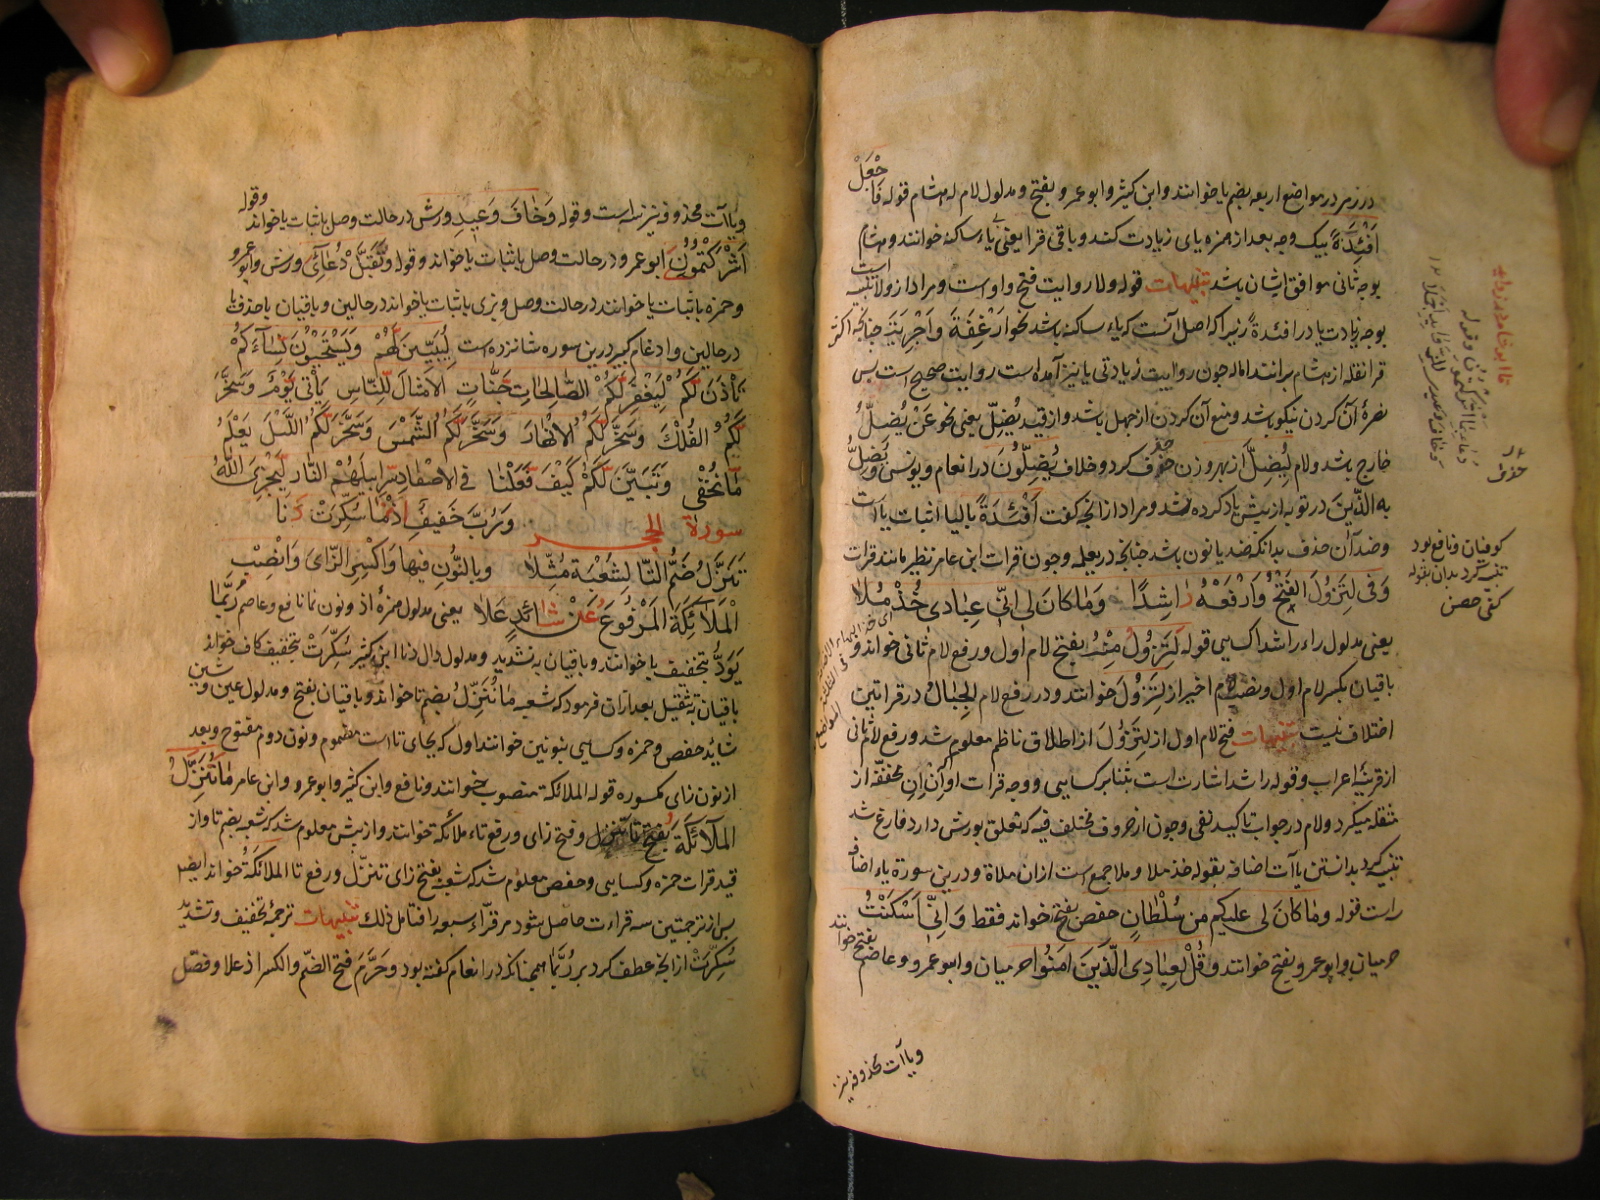 در زمر در مواضع اربعه بضم یا خوانند وابن کثیر وابو عمرو بفتح و مدلول لام له هشام قوله فَاجْعَلْ
اَفْئِدَةً بیک وجه بعد از همزه یای زیادت کند و باقی قرا یعنی بی یاء ساکنه خوانند و هشام
بوجه ثانی موافق ایشان باشد تنبیهات قوله ولا روایت فتح واو است و مراد از ولا تنبیه است
بوجه زیادت یا در افئدةً زیرا که اصل آنست که یاء ساکنه باشد نحو ارْغِفَةَ وَاَجْرِبَةَ چنانچه اکثر
قرا نقله از هشام برانند اما چون روایت زیادتی یا نیز آمده است روایت صحیح است پس
نصرة آن کردن نیکو باشد و منع آن کردن از جهل باشد و از قید یُضِلّ یعنی نحو عَنْ یُضِلُّ
خارج باشد ولام لِیُضِلَّ از بهر وزن حذف کرد و خلاف یُضِلّونَ در انعام و یونس و یُضَلُّ
به الَّذینَ در توبه از پیش یاد کرده شد و مراد از انچه گفت اَفْئِدَةً بالیا اثبات یاآت
وضد آن حذف بدانکه ضد یا نون باشد چنانچه در یعلمه و چون قرات ابن عامر نظیر مانند قرات
وَفی لِتَزُولَ الْفَتْحُ وَارْفَعْهُ رَاشِدًا وَمَا کَانَ لی اِنّی عِبَادِی خُذْ مُلَا
یعنی مدلول راء راشدا کسایی قوله لَتَزُولُ مِنْهُ بفتح لام اول و رفع لام ثانی خواند و
باقیان بکسر لام اول و نصب لام اخیر از لِتَزُولَ خوانند و در رفع لام الْجِبَالُ در قراءتین
اختلاف نیست تنبیهات فتح لام اول از لِتَزُولَ از اطلاق ناظم معلوم شد و رفع لام ثانی
از قرینهٔ اعراب و قوله راشدا اشارت است بثنا بر کسایی و وجه قرات او آن اِن مخففه از
مثقله میگرد و لام در جواب تاکید نفی و چون از حروف مختلف فیه که تعلق بورش دارد فارغ شد
تنبیه کرد بدانستن یاآت اضافه بقوله خذ ملا و ملا جمع است از ان ملاة و درین سوره یاء اضافه
راست قوله وَمَا کَانَ لی عَلَیْکُم مِنْ سُلْطَانٍ حفص بفتح خواند فقط وَاِنّی اَسْکَنْتُ
حرمیان وابو عمرو بفتح خوانند و قُلْ لِعِبَادِیَ الَّذِینَ اٰمَنُوا حرمیان وابو عمرو و عاصم بفتح خوانند
ویاآت محذوفه نیز
کوفیان و نافع بود
تنبیه کرد بدان بقوله
کفی حصن
ویاآت محذوفه نیز سه است و قوله وَخَافَ وَعِیدِ ورش در حالت وصل باثبات یا خواند وقوله
اَشْرَکْتُمُونِ ابو عمرو در حالت وصل باثبات یا خواند و قوله وَتَقَبَّلْ دُعَائِی ورش وابو عمرو
وحمزه باثبات یا خوانند در حالت وصل و بزی باثبات یا خواند در حالین و باقیان یا حذف
در حالین وادغام کبیر درین سوره شانزده است لِیُبَیِّنَ لَهُمْ وَیَسْتَحْیُونَ نِسَاءَکُمْ
تَأَذَّنَ رَبُّکُمْ لِیَغْفِرَ لَکُمْ الصَّالِحَاتِ جَنَّاتٍ الْاَمْثَالَ لِلنَّاسِ یَأْتِیَ یَوْمٌ وَسَخَّرَ
لَکُمُ الْفُلْکَ وَسَخَّرَ لَکُمُ الْاَنْهَارَ وَسَخَّرَ لَکُمُ الشَّمْسَ وَسَخَّرَ لَکُمُ اللَّیْلَ یَعْلَمُ
مَا نُخْفِی وَتَبَیَّنَ لَکُمْ کَیْفَ فَعَلْنَا فِی الْاَصْفَادِ سَرَابِیلُهُمْ النَّارُ لِیَجْزِیَ اللّٰهُ
سورة الحجر وَرُبَّ خَفِیفٌ اِذْ نَمَا سُکِّرَتْ دَنَا
تَنَزَّلُ ضَمُّ التَّا لِشُعْبَةَ مُثِّلَا وَبِالنُّونِ فِیهَا وَاکْسِرِ الزَّایَ وَانْصِبِ
الْمَلَائِکَةَ الْمَرْفُوعَ عَنْ شَائِدٍ عَلَا یعنی مدلول همزهٔ اذ و نون نما نافع و عاصم رُبَمَا
یَوَدُّ بتخفیف با خوانند و باقیان به تشدید و مدلول دال دنا ابن کثیر سُکِرَتْ بتخفیف کاف خواند
باقیان به تثقیل بعد ازان فرمود که شعبه مَا تُنَزَّلُ بضم تا خواند و باقیان بفتح و مدلول عین و شین
شاید حفص و حمزه و کسایی بنونین خوانند اول که بجای تا است مضموم و نون دوم مفتوح و بعد
از نون زای مکسوره قوله الملائکة منصوب خوانند و نافع وابن کثیر وابو عمرو وابن عامر مَا تَنَزَّلُ
الْمَلَائِکَةُ بفتح تا و فتح زای و رفع تاء ملائکة خوانند و از پیش معلوم شد که شعبه بضم تا و از
قید قرات حمزه و کسایی و حفص معلوم شد که شعبه بفتح زای تُنَزَّل و رفع تا الملائکَةُ خواند ایضا
پس از ترجمتین سه قراءت حاصل شود مر قرّاء سبعه را فتامل ذلک تنبیهات ترجمهٔ تخفیف و تشدید
سُکِّرَتْ از انچه عطف کرد بر رُبَّمَا همچنانکه در انعام گفته بود وحَرَّمَ فتح الضّم والکسر اذ علا وفصّل